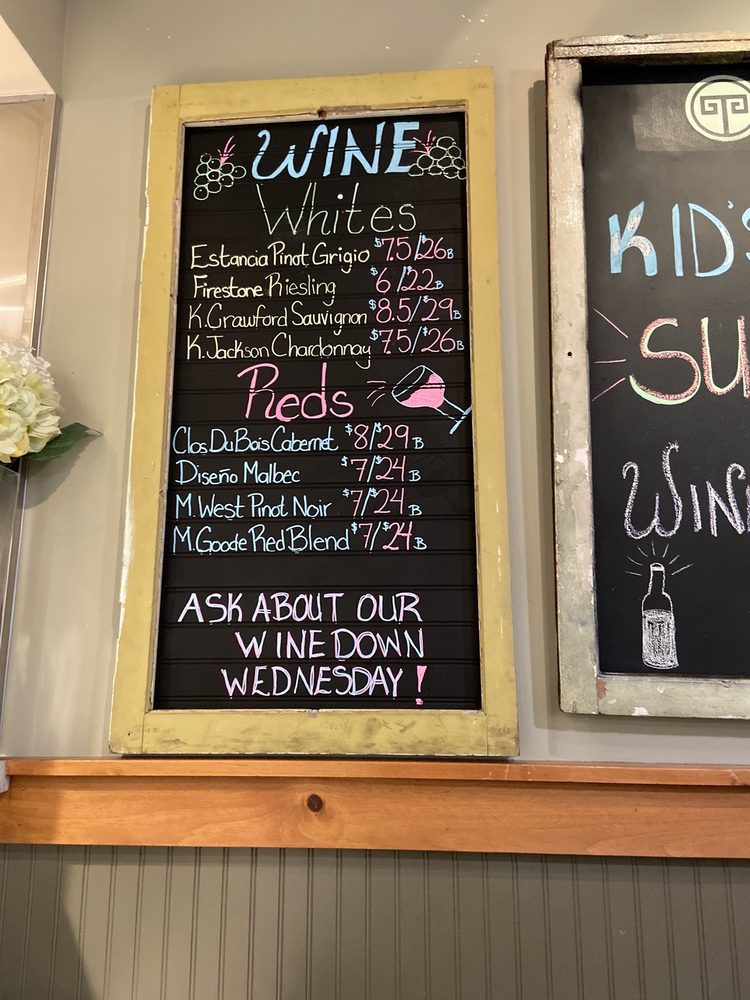 WINE
Whites
Estancia Pinot Grigio $7.5/$26B
Firestone Riesling $6/$22B
K.Crawford Sauvignon $8.5/$29B
K.Jackson Chardonnay $7.5/$26B
Reds
Clos Du Bois Cabernet $8/$29B
Diseño Malbec $7/$24B
M.West Pinot Noir $7/$24B
M.Goode Red Blend $7/$24B
ASK ABOUT OUR
WINE DOWN
WEDNESDAY!
KID'S
SU
WIN